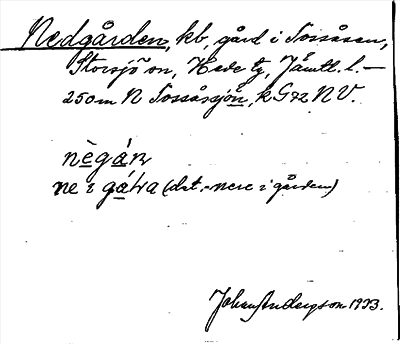 Nedgården, kb, gård i Tossåsen,
Storsjö sn, Hede tg, Jämtl. l. —
250 m N Tossåssjön, k G 72 NV.
nègán,
ne i gáṛa (dat. = nere i gården)
Johan Anderson 1933.